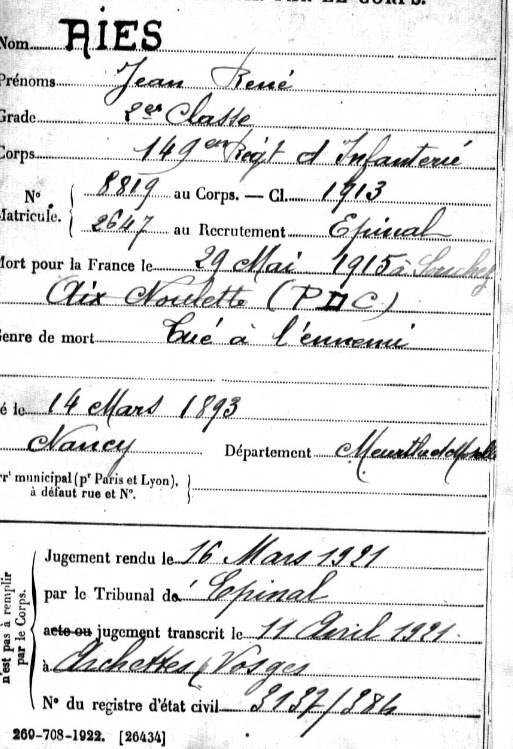 Nom AIES
Prénoms Jean René
Grade 2e Classe
Corps 149e Regt d'Infanterie
N° 8819 au Corps. — Cl. 1913
Matricule. 2647 au Recrutement Epinal
Mort pour la France le 29 Mai 1915 à Souchez
Aix Noulette (PDC)
Genre de mort Tué à l'ennemi
é le 14 Mars 1893
Nancy Département Meurthe et Moselle
rr' municipal (pr Paris et Lyon),
à défaut rue et N°.
Jugement rendu le 16 Mars 1921
par le Tribunal de Epinal
acte ou jugement transcrit le 11 Avril 1921.
à Archettes (Vosges
N° du registre d'état civil 3137/386
n'est pas à remplir
par le Corps.
269-708-1922. [26434]